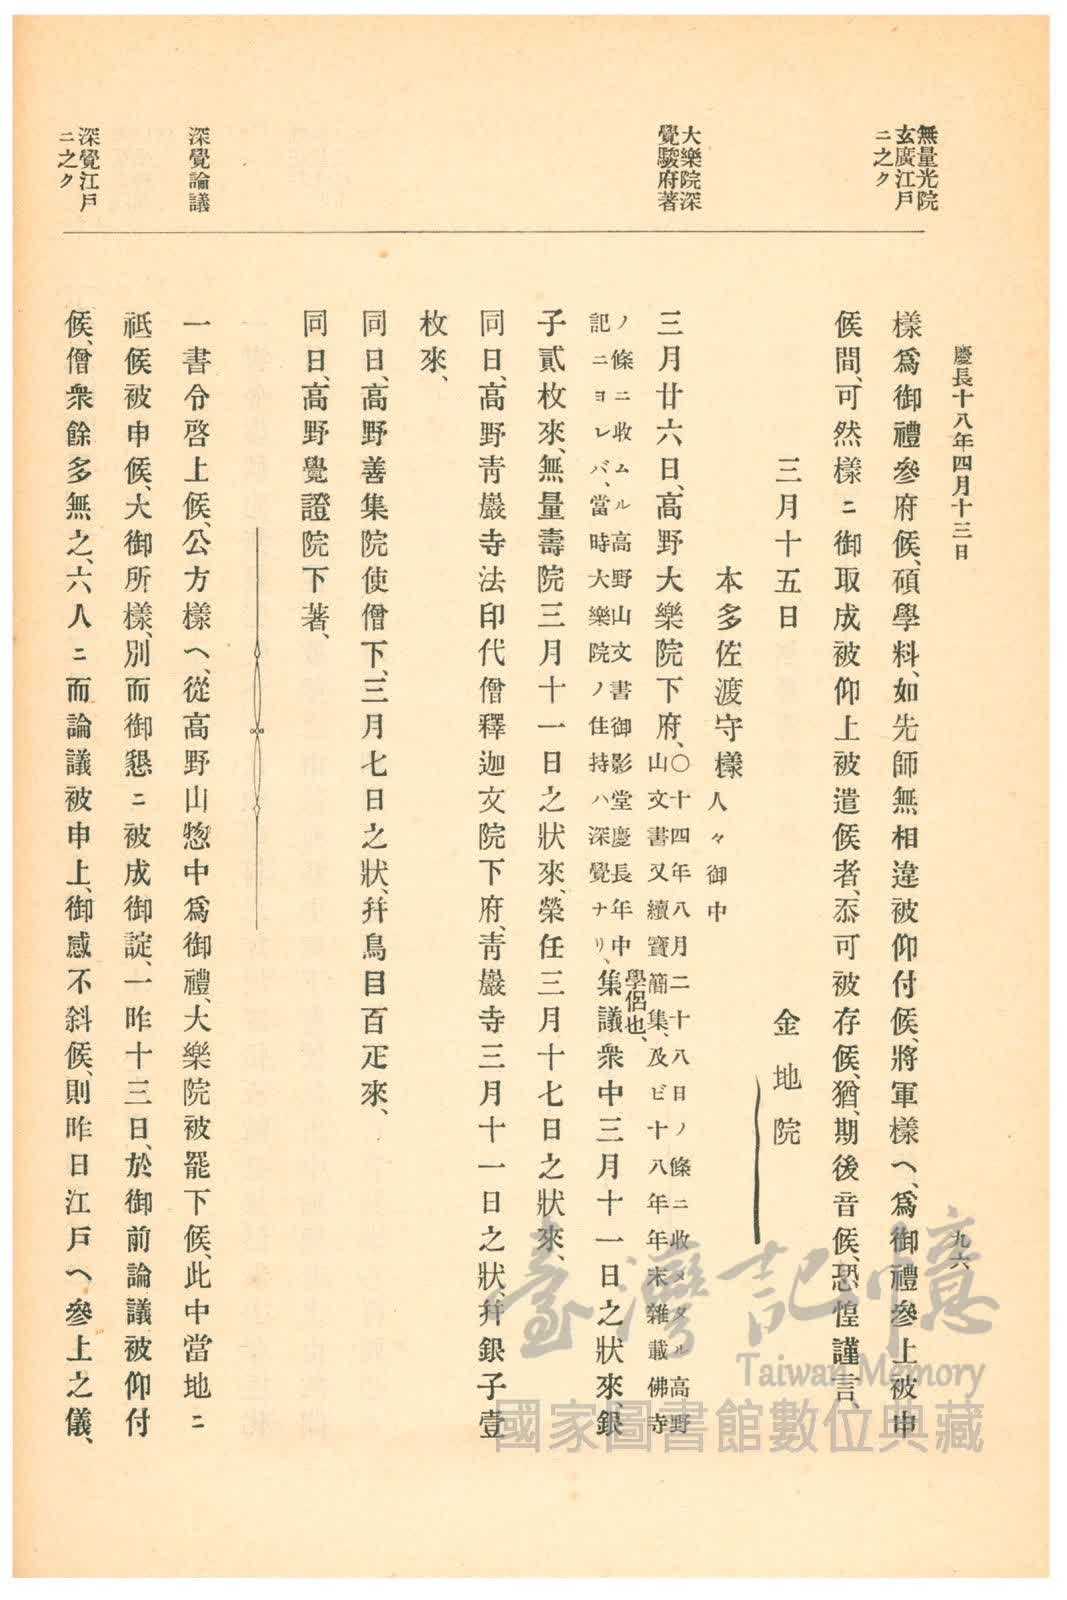 慶長十八年四月十三日
九六
無量光院
玄廣江戸
ニ之ク
大樂院深
覺駿府著
深覺論議
深覺江戸
ニ之ク
樣爲御禮參府候、碩學料、如先師無相違被仰付候、將軍樣へ、爲御禮參上被申
候間、可然樣ニ御取成被仰上被遣候者、忝可被存候、猶期後音候、恐惶謹言、
三月十五日
金地院
本多佐渡守樣人々御中
三月廿六日、高野大樂院下府、〇十四年八月二十八日ノ條ニ收メタル高野
山文書又續寶簡集、及ビ十八年年末雜載佛寺
ノ條ニ收ムル高野山文書御影堂慶長年中
記ニヨレバ、當時大樂院ノ住持ハ深覺ナリ、
學侶也、
集議衆中三月十一日之狀來、銀
子貳枚來、無量壽院三月十一日之狀來、榮任三月十七日之狀來、
同日、高野靑巖寺法印代僧釋迦文院下府、靑巖寺三月十一日之狀、幷銀子壹
枚來、
同日、高野善集院使僧下、三月七日之狀、幷鳥目百疋來、
同日、高野覺證院下著、
一書令啓上候、公方樣へ、從高野山惣中爲御禮、大樂院被罷下候、此中當地ニ
祗候被申候、大御所樣、別而御懇ニ被成御諚、一昨十三日、於御前論議被仰付
候、僧衆餘多無之、六人ニ而論議被申上、御感不斜候、則昨日江戸へ參上之儀、
臺灣記憶
Taiwan Memory
國家圖書館數位典藏